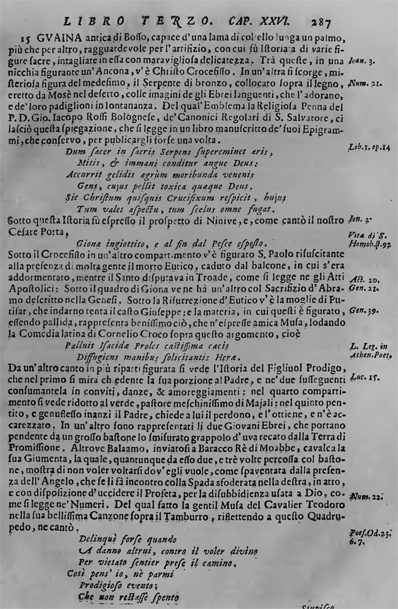 LIBRO TERZO. CAP. XXVI. 287
15 GUAINA antica di Bosso, capace d'una lama di coltello lunga un palmo,
più che per altro, ragguardevole per l'artifizio, con cui fù Istoriata di varie fi-
gure sacre, intagliate in essa con maravigliosa delicatezza. Trà queste, in una Ioan. 3.
nicchia figurante un'Ancona, v'è Christo Crocefisso. In un'altra si scorge, mi-
steriosa figura del medesimo, il Serpente di bronzo, collocato sopra il legno, Num. 21.
eretto da Mosè nel deserto, colle imagini degli Ebrei languenti, che l'adorano,
e de' loro padiglioni in lontananza. Del qual'Emblema la Religiosa Penna del
P. D. Gio. Iacopo Rossi Bolognese, de' Canonici Regolari di S. Salvatore, ci
lasciò questa spiegazione, che si legge in un libro manuscritto de' suoi Epigram-
mi, che conservo, per publicargli forse una volta. Lib. 1. ep. 14
Dum sacer in sacris Serpens supereminet aris,
Mitis, & immani conditur angue Deus:
Accurrit gelidis agrùm moribunda venenis
Gens, cujus pellit toxica quæque Deus.
Sic Christum quisquis Crucifixum respicit, hujus
Tum valet aspectu, tum scelus omne fugat.
Sotto questa Istoria fù espresso il prospetto di Ninive, e, come cantò il nostro Ion. 2.
Cesare Porta, Vita di S.
Giona ingiottito, e al fin dal Pesce esposto. Homob. ft. 92
Sotto il Crocefisso in un'altro compartimento v'è figurato S. Paolo risuscitante
alla presenza di molta gente il morto Eutico, caduto dal balcone, in cui s'era
addormentato, mentre il Santo disputava in Troade, come si legge ne gli Atti Act. 20.
Apostolici: Sotto il quadro di Giona ve ne hà un'altro col Sacrifizio d'Abra- Gen. 21.
mo descritto nella Genesi. Sotto la Risurrezione d'Eutico v'è la moglie di Pu-
tifar, che indarno tenta il casto Giuseppe; e la materia, in cui questi è figurato, Gen. 39.
essendo pallida, rappresenta benissimo ciò, che n'espresse amica Musa, lodando
la Comedia latina di Cornelio Croco sopra questo argomento, cioè
Palluit Isacidæ Proles castissima cæcis L. Leg. in
Diffugiens manibus solicitantis Heræ. Athen. Poet.
Da un'altro canto in più riparti figurata si vede l'Istoria del Figliuol Prodigo,
che nel primo si mira chiedente la sua porzione al Padre, e ne' due susseguenti Luc. 15.
consumantela in conviti, danze, & amoreggiamenti: nel quarto comparti-
mento si vede ridotto al verde, pastore meschinissimo di Majali; nel quinto pen-
tito, e genuflesso inanzi il Padre, chiede a lui il perdono, e l'ottiene, e n'è ac-
carezzato. In un'altro sono rappresentati li due Giovani Ebrei, che portano
pendente da un grosso bastone lo smisurato grappolo d'uva recato dalla Terra di
Promissione. Altrove Balaamo, inviatosi a Baracco Rè di Moabbe, cavalca la
sua Giumenta, la quale, quantunque da esso due, e trè volte percossa col basto-
ne, mostra di non voler voltarsi dov'egli vuole, come spaventata dalla presen-
za dell'Angelo, che se li fà incontro colla Spada sfoderata nella destra, in atto,
e con disposizione d'uccidere il Profeta, per la disubbidienza usata a Dio, co- Num. 22.
me si legge ne' Numeri. Del qual fatto la gentil Musa del Cavalier Teodoro
nella sua bellissima Canzone sopra il Tamburro, riflettendo a questo Quadru-
pedo, ne cantò. Poes. Od. 23.
Delinquè forse quando 6. 7.
A danno altrui, contro il voler divino
Per vietato sentier prese il camino.
Così pens'io, nè parmi
Prodigioso evento;
Che non restasse spento